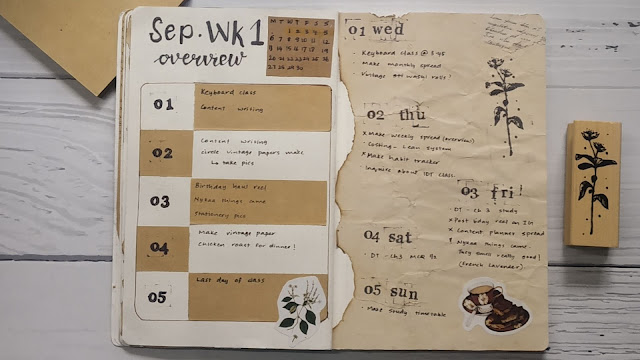 Sep. Wk 1
overview
M T W T F S S
1 2 3 4 5
6 7 8 9 10 11 12
13 14 15 16 17 18 19
20 21 22 23 24 25 26
27 28 29 30
01
Keyboard class
Content writing
02
Content writing
circle vintage papers make
↳ take pics
03
Birthday haul reel
Nykaa things came
Stationery pics
04
Make vintage paper
Chicken roast for dinner!
05
Last day of class
01 wed
Keyboard class @ 3:45
Make monthly spread
Vintage
02 thu
x Make weekly spread (overview)
Costing - Lean System
x Make habit tracker
Inquire about IDT class
03 fri!
DT - ch 3 study
x Post bday reel on IG
x Content planner spread
Nykaa things came.
They smell really good!
(French Lavender)
04 sat
DT - ch3 MCQ
05 sun
Make study timetable